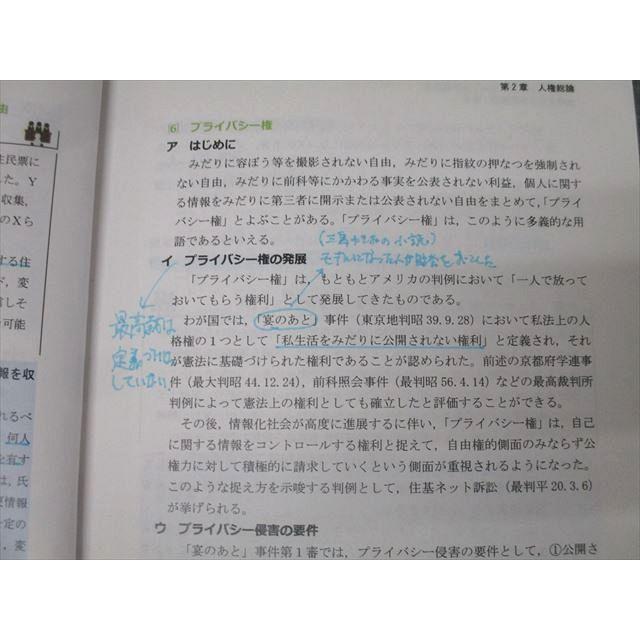 第2章 人権総論
6 プライバシー権
ア はじめに
みだりに容ぼう等を撮影されない自由,みだりに指紋の押なつを強制され
ない自由,みだりに前科等にかかわる事実を公表されない利益,個人に関す
る情報をみだりに第三者に開示または公表されない自由をまとめて,「プライ
バシー権」とよぶことがある。「プライバシー権」は,このように多義的な用
語であるといえる。
(三島由紀夫の小説)
イ プライバシー権の発展
モデルになった人が訴えをおこした
「プライバシー権」は,もともとアメリカの判例において「一人で放って
おいてもらう権利」として発展してきたものである。
わが国では,「宴のあと」事件(東京地判昭39.9.28)において私法上の人
格権の1つとして「私生活をみだりに公開されない権利」と定義され,それ
が憲法に基礎づけられた権利であることが認められた。前述の京都府学連事
件(最大判昭44.12.24),前科照会事件(最判昭56.4.14)などの最高裁判所
判例によって憲法上の権利としても確立したと評価することができる。
最高裁は
定義づけ
していない
その後,情報化社会が高度に進展するに伴い,「プライバシー権」は,自己
に関する情報をコントロールする権利と捉えて,自由権的側面のみならず公
権力に対して積極的に請求していくという側面が重視されるようになった。
このような捉え方を示唆する判例として,住基ネット訴訟(最判平20.3.6)
が挙げられる。
ウ プライバシー侵害の要件
「宴のあと」事件第1審では,プライバシー侵害の要件として,①公開さ
由
住民票に
した。Y
収集,
のXら
する住
ド,変
言しそ
可能
報を収
れるべ
何人
を有す
は,氏
更情報
定の
,変